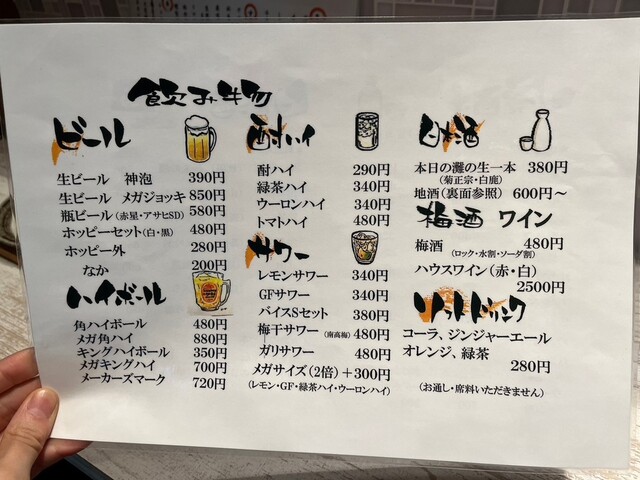 飲み物
ビール
生ビール 神泡 390円
生ビール メガジョッキ 850円
瓶ビール(赤星・アサヒSD) 580円
ホッピーセット(白・黒) 480円
ホッピー外 280円
なか 200円
ハイボール
角ハイボール 480円
メガ角ハイ 880円
キングハイボール 350円
メガキングハイ 700円
メーカーズマーク 720円
酎ハイ
酎ハイ 290円
緑茶ハイ 340円
ウーロンハイ 340円
トマトハイ 480円
サワー
レモンサワー 340円
GFサワー 340円
バイスSセット 380円
梅干サワー (南高梅) 480円
ガリサワー 480円
メガサイズ(2倍) +300円
(レモン・GF・緑茶ハイ・ウーロンハイ)
日本酒
本日の灘の生一本 380円
(菊正宗・白鹿)
地酒(裏面参照) 600円〜
梅酒 ワイン
梅酒 480円
(ロック・水割・ソーダ割)
ハウスワイン(赤・白)
2500円
ソフトドリンク
コーラ、ジンジャーエール
オレンジ、緑茶
280円
(お通し・席料いただきません)